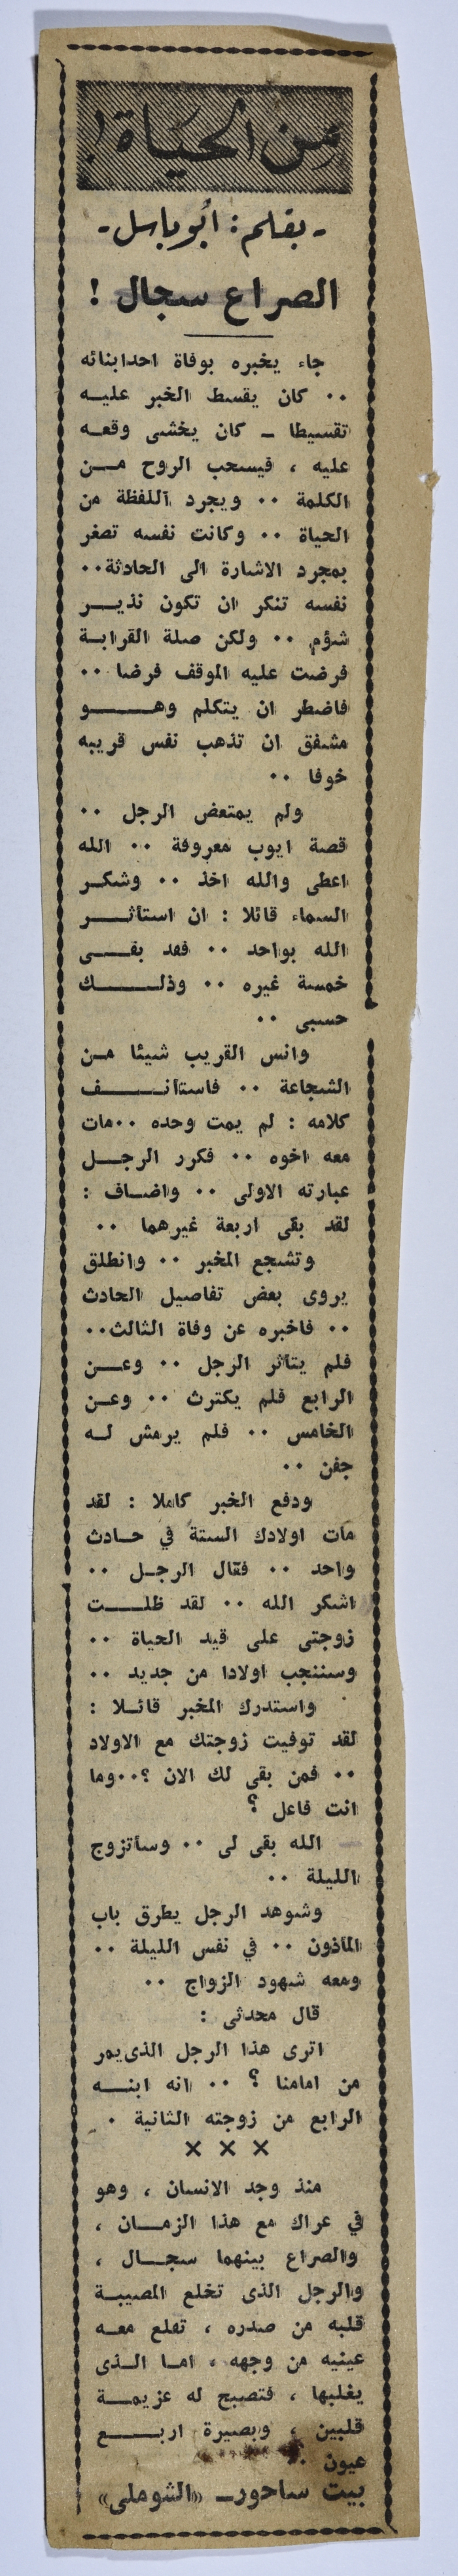 من الحياة !
- بقلم : أبو باسل -
الصراع سجال !
جاء يخبره بوفاة احد ابنائه
٠٠ كان يقسط الخبر عليــه
تقسيطا ــ كان يخشى وقعــه
عليه ، فيسحب الروح مــن
الكلمة ٠٠ ويجرد اللفظة من
الحياة ٠٠ وكانت نفسه تصغر
بمجرد الاشارة الى الحادثة٠٠
نفسه تنكر ان تكون نذيــر
شؤم ٠٠ ولكن صلة القرابـة
فرضت عليه الموقف فرضا ٠٠
فاضطر ان يتكلم وهـــو
مشفق ان تذهب نفس قريبه
خوفا ٠٠
ولم يمتعض الرجل ٠٠
قصة ايوب معروفة ٠٠ الله
اعطى والله اخذ ٠٠ وشكـر
السماء قائلا : ان استاثــر
الله بواحد ٠٠ فقد بقــى
خمسة غيره ٠٠ وذلـــك
حسبى ٠٠
وانس القريب شيئا مـن
الشجاعة ٠٠ فاستانــف
كلامه : لم يمت وحده ٠٠مات
معه اخوه ٠٠ فكرر الرجــل
عبارته الاولى ٠٠ واضـاف :
لقد بقى اربعة غيرهما ٠٠
وتشجع المخبر ٠٠ وانطلق
يروى بعض تفاصيل الحادث
٠٠ فاخبره عن وفاة الثالث٠٠
فلم يتاثر الرجل ٠٠ وعــن
الرابع فلم يكترث ٠٠ وعـن
الخامس ٠٠ فلم يرمش لـه
جفن ٠٠
ودفع الخبر كاملا : لقد
مات اولادك الستة في حـادث
واحد ٠٠ فقال الرجـل ٠٠
اشكر الله ٠٠ لقد ظلــت
زوجتى على قيد الحياة ٠٠
وسننجب اولادا من جديد ٠٠
واستدرك المخبر قائـلا :
لقد توفيت زوجتك مع الاولاد
٠٠ فمن بقى لك الان ؟٠٠وما
انت فاعل ؟
الله بقى لى ٠٠ وساتزوج
الليلة ٠٠
وشوهد الرجل يطرق باب
الماذون ٠٠ في نفس الليلة ٠٠
ومعه شهود الزواج ٠٠
قال محدثى :
اترى هذا الرجل الذى يمر
من امامنا ؟ ٠٠ انه ابنــه
الرابع من زوجته الثانية ٠
× × ×
منذ وجد الانسان ، وهو
في عراك مع هذا الزمـان ،
والصراع بينهما سجـال ،
والرجل الذى تخلع المصيبـة
قلبه من صدره ، تقلع معـه
عينيه من وجهه ، امـا الـذى
يغلبها ، فتصبح له عزيمــة
قلبين ، وبصيرة اربـــع
عيون
بيت ساحور ــ «الشوملى»